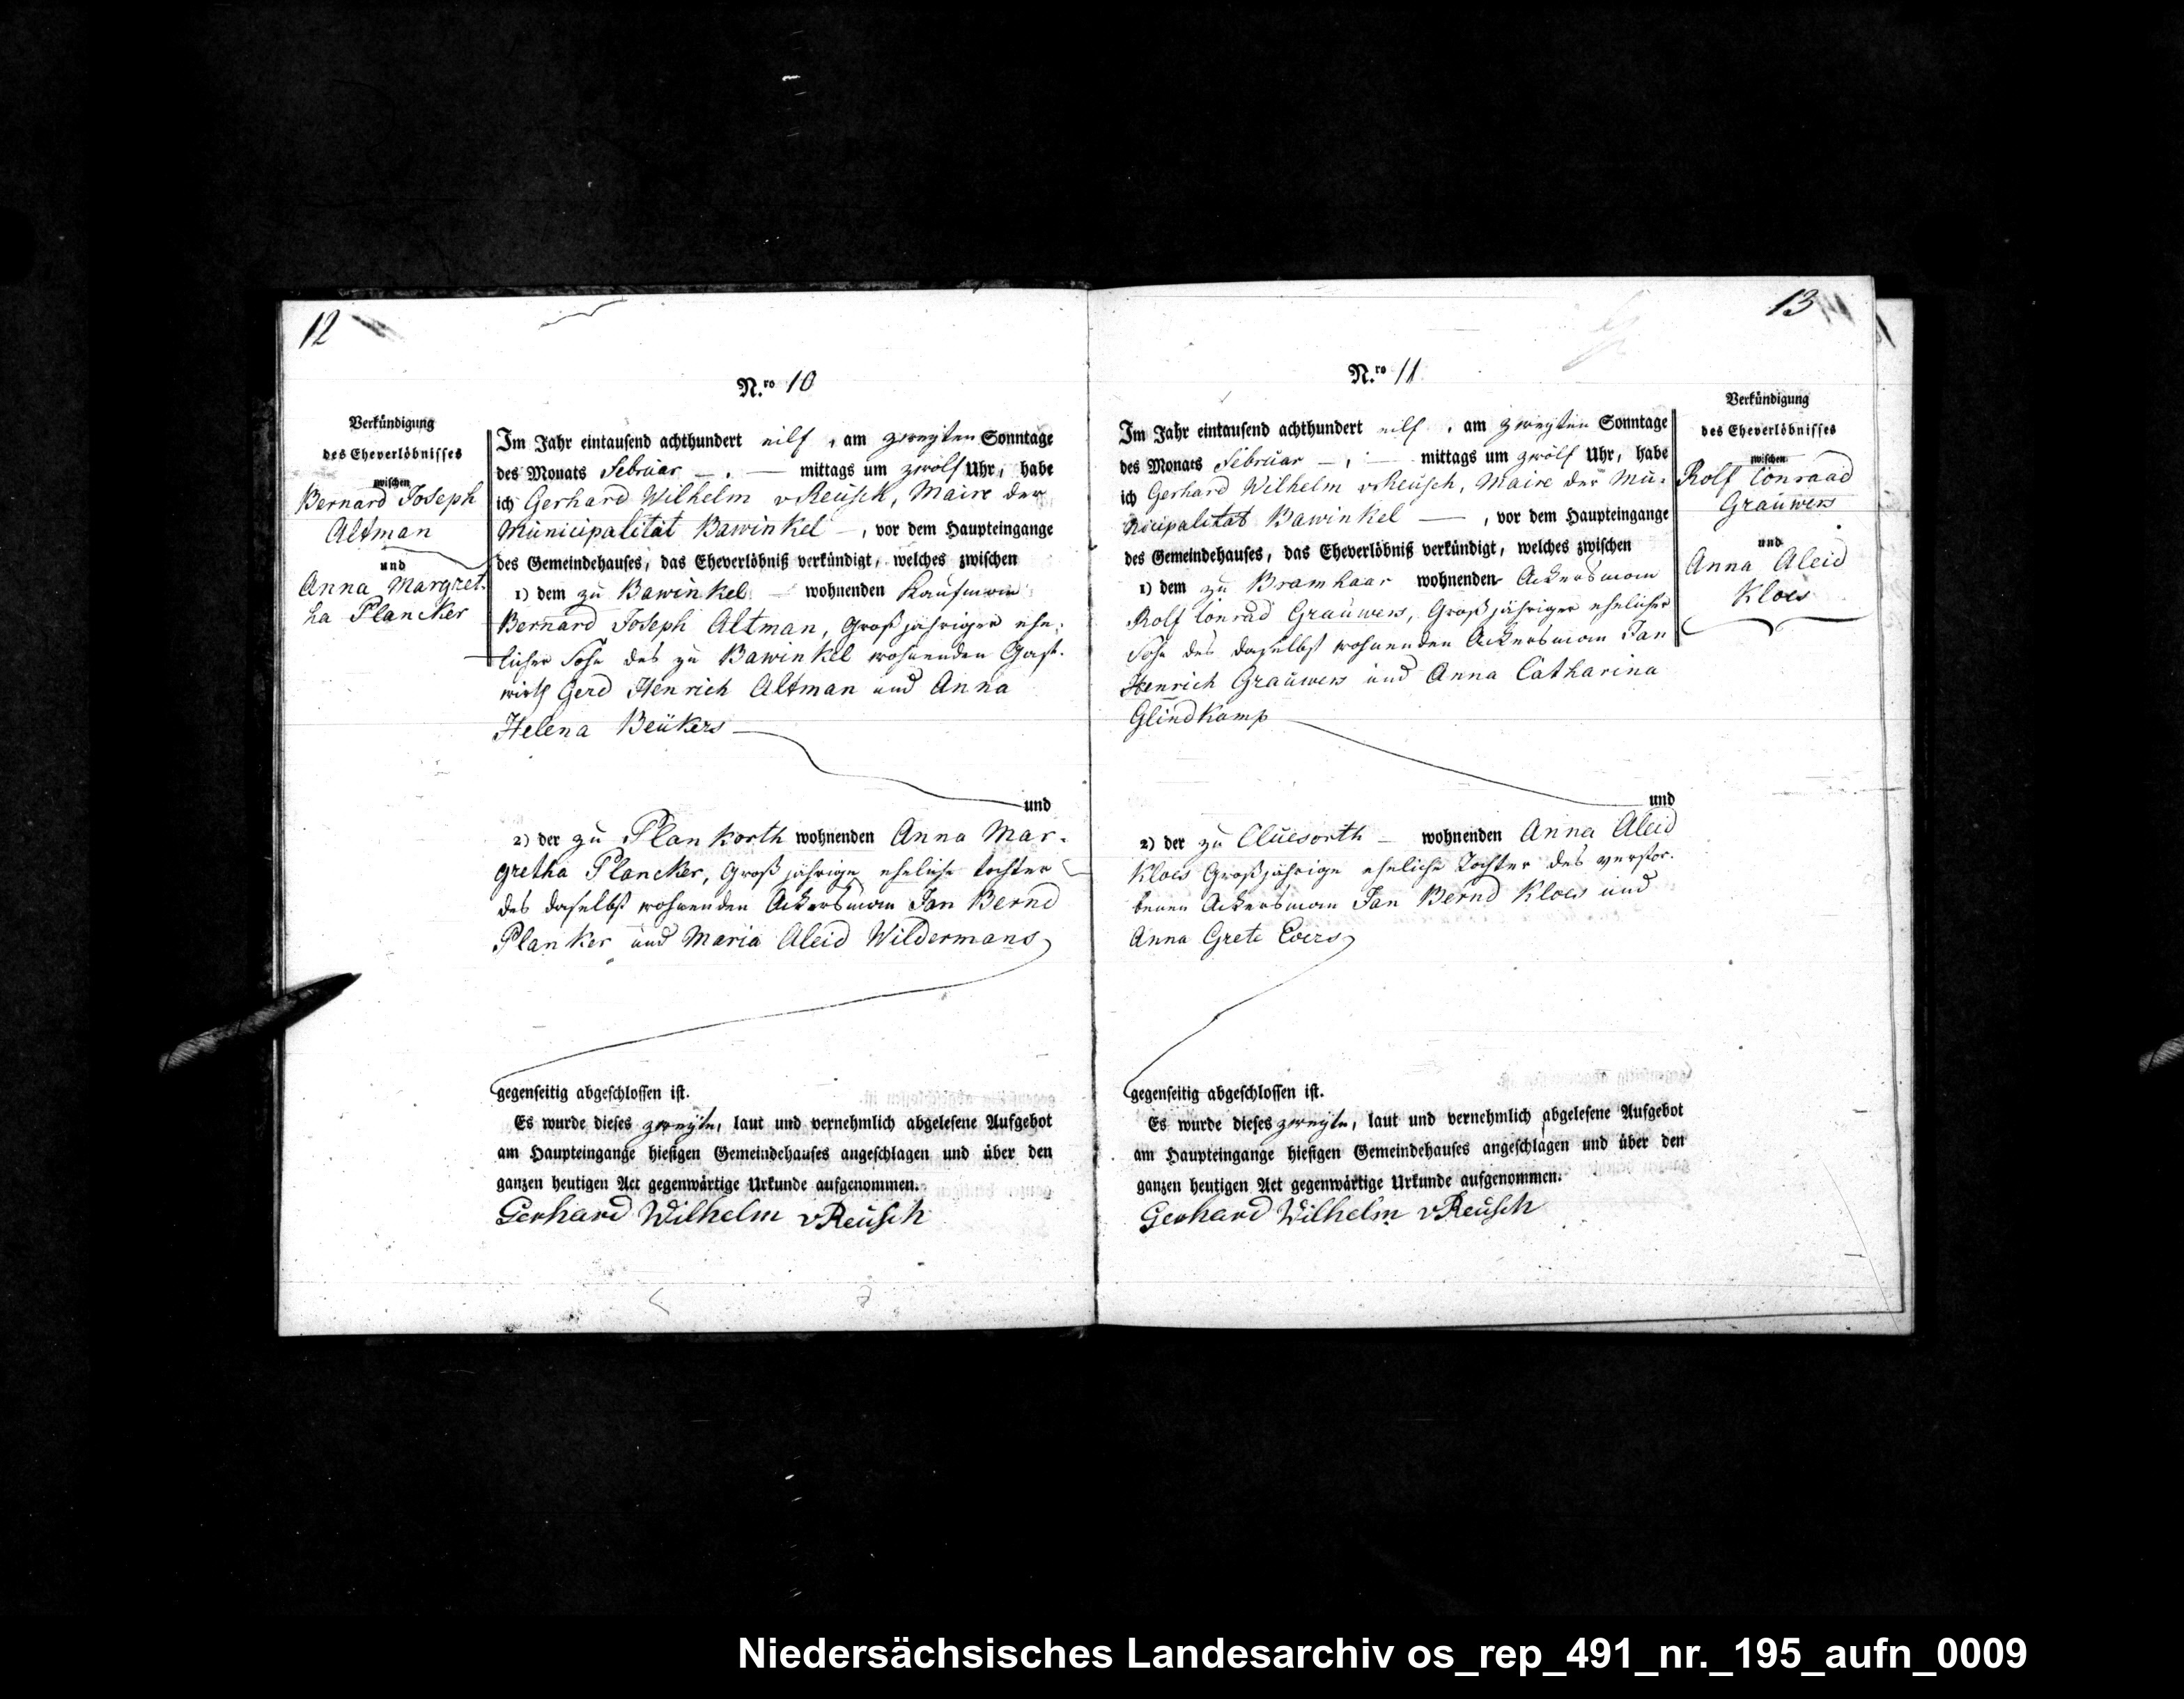 12
N.ro 10
Verkündigung
des Eheverlöbnisses
zwischen
Bernard Joseph
Altman
und
Anna Margret-
ha Plancker
Im Jahr eintausend achthundert eilf, am zweyten Sonntage
des Monats Februar —, — mittags um zwölf Uhr, habe
ich Gerhard Wilhelm vReusch, Maire der
Municipalität Bawinkel —, vor dem Haupteingange
des Gemeindehauses, das Eheverlöbniß verkündigt, welches zwischen
1) dem zu Bawinkel — wohnenden Kaufman
Bernard Joseph Altman, Großjähriger ehe-
licher Sohn des zu Bawinkel wohnenden Gast-
wirth Gerd Henrich Altman und Anna
Helena Beukers
und
2) der zu Plankorth wohnenden Anna Mar-
gretha Plancker, Großjährige eheliche tochter
des daselbst wohnenden Ackersman Jan Bernd
Planker und Maria Aleid Wildermans
gegenseitig abgeschlossen ist.
Es wurde dieses zweyte, laut und vernehmlich abgelesene Aufgebot
am Haupteingange hiesigen Gemeindehauses angeschlagen und über den
ganzen heutigen Act gegenwärtige Urkunde aufgenommen.
Gerhard Wilhelm vReusch
13
N.ro 11
Verkündigung
des Eheverlöbnisses
zwischen
Rolf Conraad
Grauwers
und
Anna Aleid
Kloes
Im Jahr eintausend achthundert eilf, am zweyten Sonntage
des Monats Februar —, — mittags um zwölf Uhr, habe
ich Gerhard Wilhelm vReusch, Maire der Mu-
nicipalität Bawinkel —, vor dem Haupteingange
des Gemeindehauses, das Eheverlöbniß verkündigt, welches zwischen
1) dem zu Bramhaar wohnenden Ackersman
Rolf Conrad Grauwers, Großjähriger ehelicher
Sohn des daselbst wohnenden Ackersman Jan
Henrich Grauwers und Anna Catharina
Glindkamp
und
2) der zu Clusorth — wohnenden Anna Aleid
Kloes Großjährige eheliche Tochter des verstor-
benen Ackersman Jan Bernd Kloes und
Anna Grete Evers
gegenseitig abgeschlossen ist.
Es wurde dieses zweyte, laut und vernehmlich abgelesene Aufgebot
am Haupteingange hiesigen Gemeindehauses angeschlagen und über den
ganzen heutigen Act gegenwärtige Urkunde aufgenommen.
Gerhard Wilhelm vReusch
Niedersächsisches Landesarchiv os_rep_491_nr._195_aufn_0009